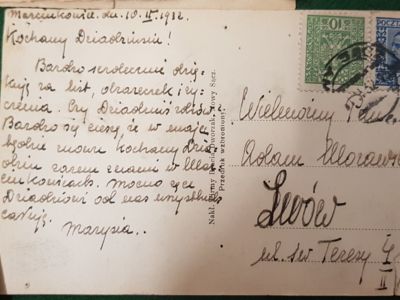 Marcinkowice, dn. 10.II.1932.
Kochany Dziadziusiu!
Bardzo serdecznie dzię-
kuję za list, obrazerek i ży-
czenia. Czy Dziadziuś zdrów.
Bardzo się cieszę, że w
będzie znowu kochany Dzia-
dzio razem z nami w Mar-
cinkowicach. Mocno ręce
Dziadziusi od nas wszystkich
całuję.
Marysia.
Nakł. Firmy Jaworzak, Nowy Sącz.
Przedruk wzbroniony.
10
POCZTA
Wielmożny Pan
Adam Morawski
Lwów
ul. św. Teresy 4
II